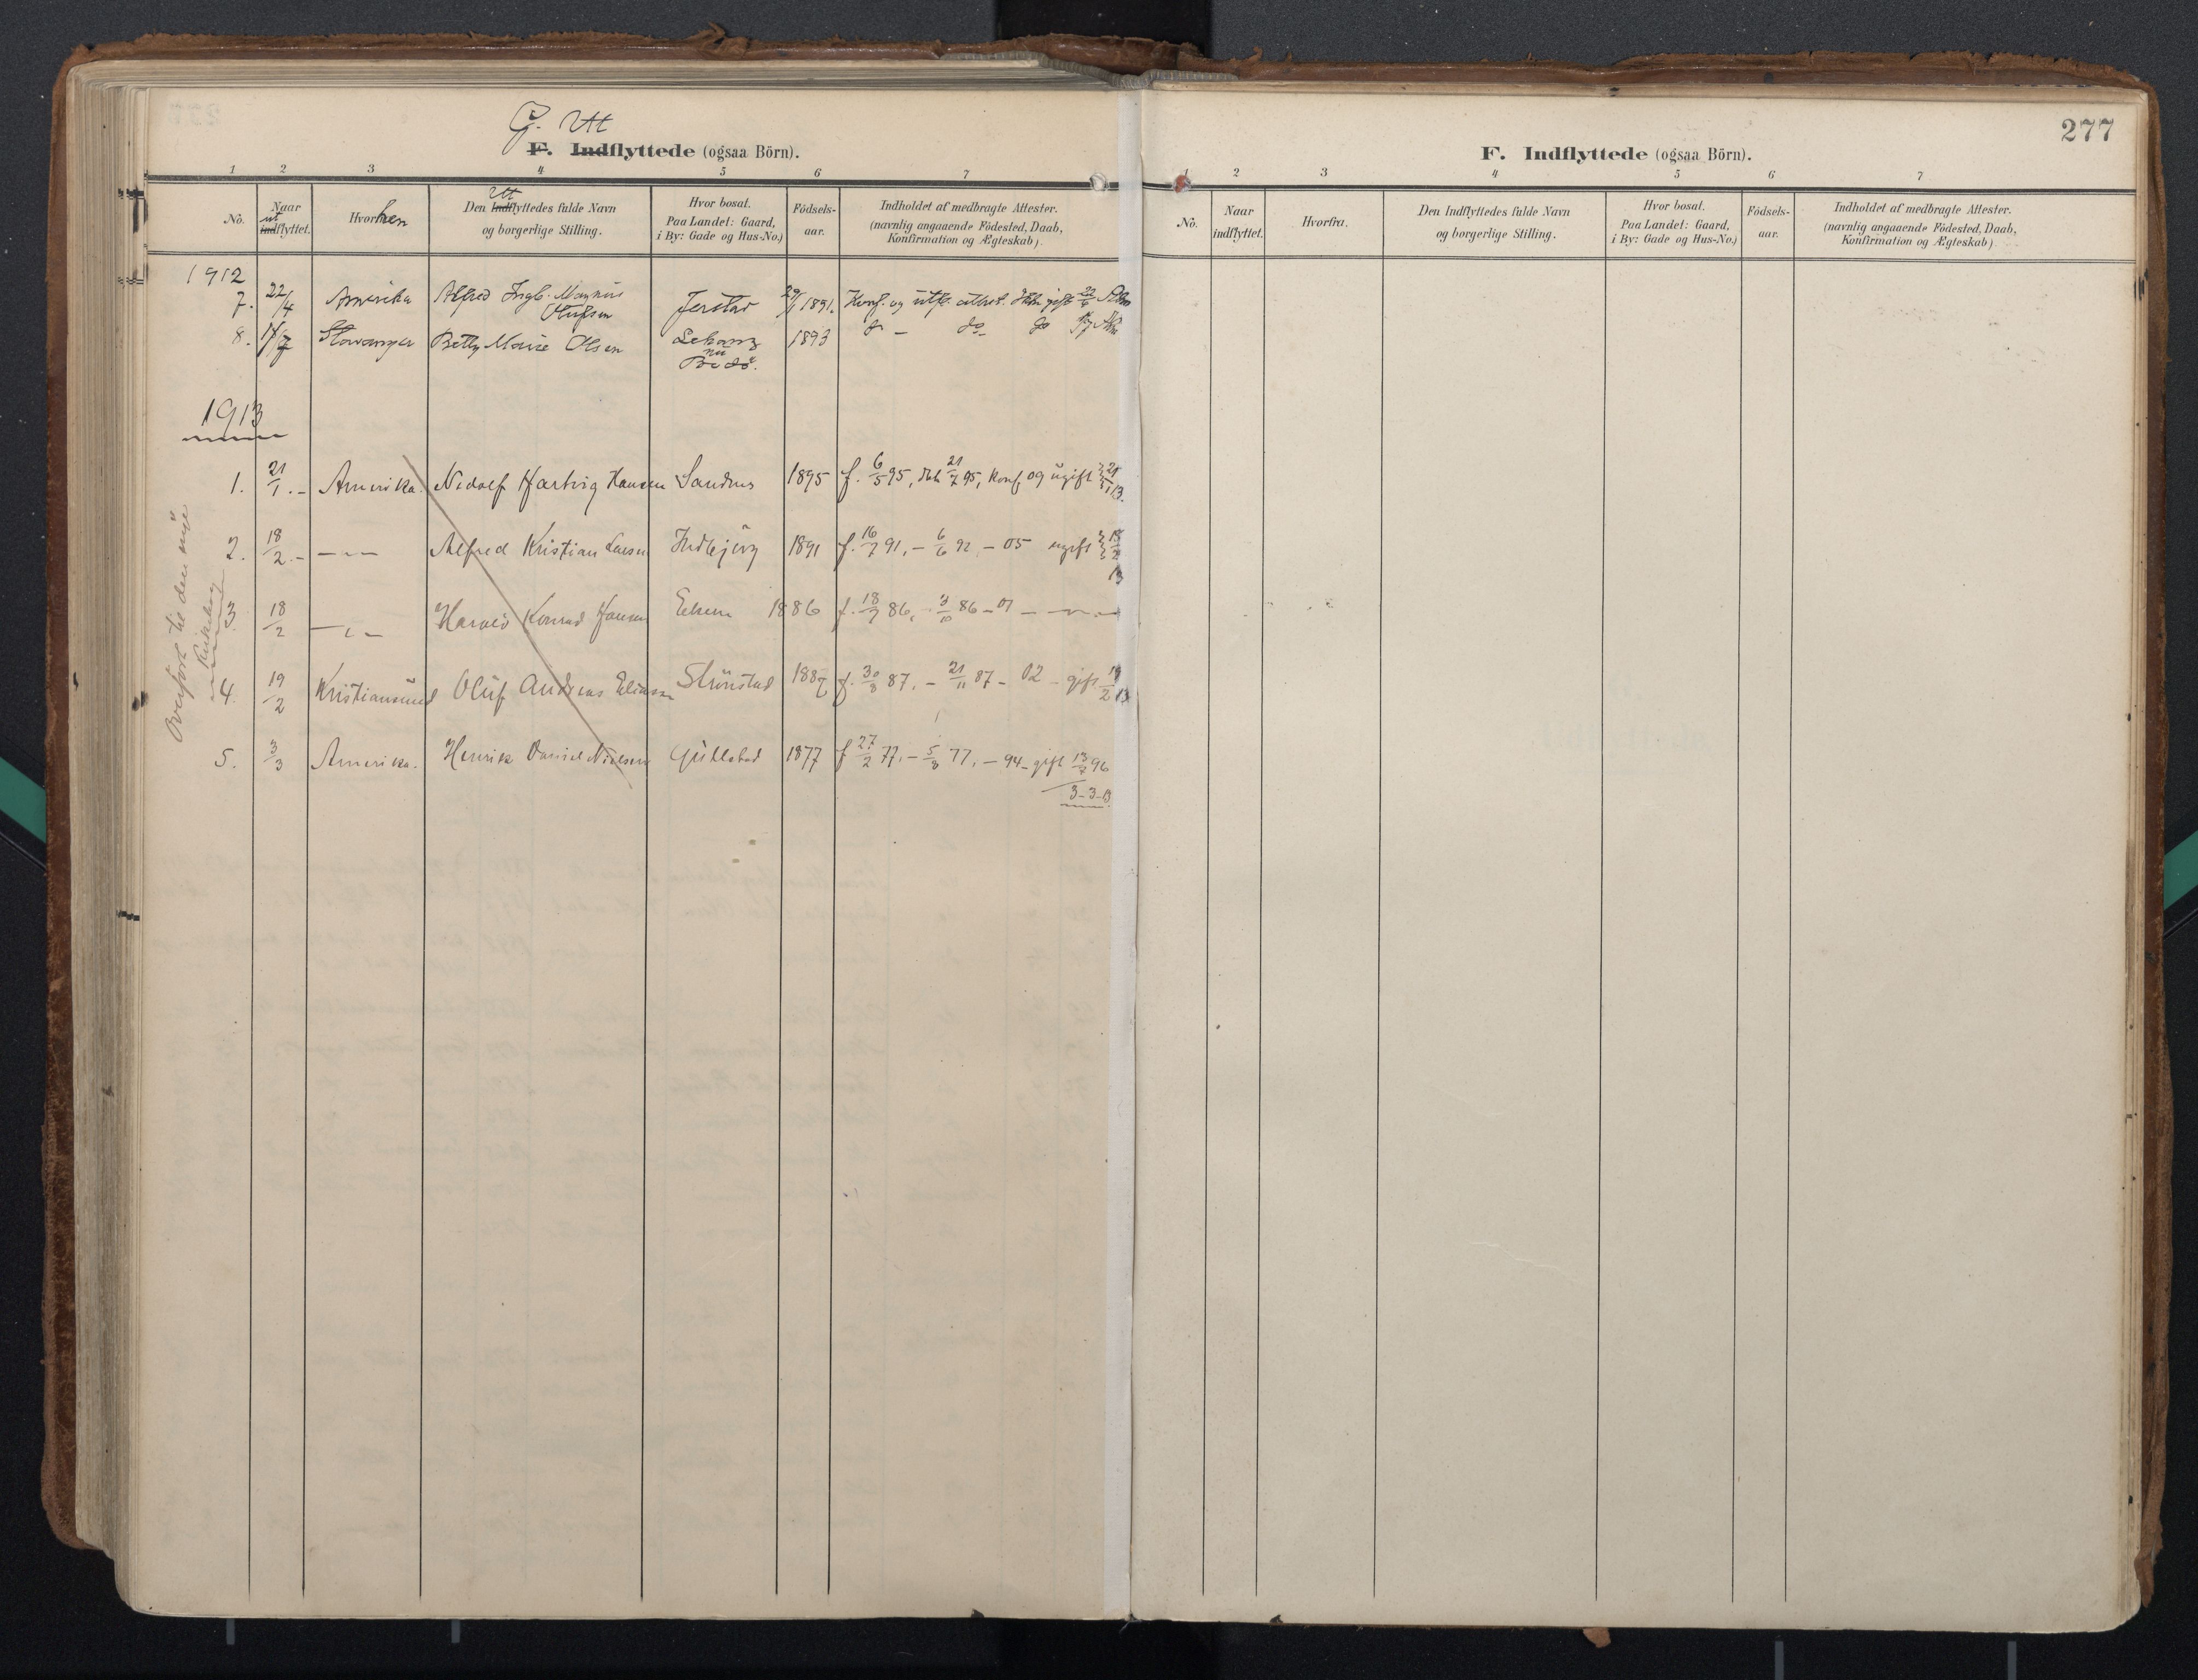 G. Ut
F. Indflyttede (ogsaa Börn).
1 2 3 4 5 6 7
No.
Naar
ut
indflyttet.
Hvorhen
Ut
Den Indflyttedes fulde Navn
og borgerlige Stilling.
Hvor bosat.
Paa Landet: Gaard,
i By: Gade og Hus-No.)
Födsels-
aar.
Indholdet af medbragte Attester.
(navnlig angaaende Födested, Daab,
Konfirmation og Ægteskab)
1912
7. 22/4 Amerika Alfred Ingb. Magnus Jerstad 1891. Konf. og
Olufsen
8. 17/7 Stavanger Betty Marie Olsen 1893 do - do- do
nu
Bodö.
1913
1. 21/1.- Amerika. Nidolf Hartvig Hansen Sandnes 1895 f. 6/5 95, 21/7 95, konf og ugift 21/1 13.
2. 18/2.- -"- Alfred Kristian Larsen Indbjerg 1891 f. 16/7 91, - 6/6 92, - 05 ugift 18/2
13
3. 18/2 -"- Harald Konrad Hansen 1886 f. 18/7 86, - 3/10 86 - 01 - -"-
4. 19/2 Kristiansund Oluf Andreas Eliassen Strönstad 1887 f. 30/8 87, - 21/11 87 - 02 - gift 19/2 13
5. 3/3 Amerika. Henrik Daniel Nielsen Gullstad 1877 f 27/2 77, - 5/8 77, - 94 - gift 13/7 96
3-3-13.
Overfört til den nye
kirkebog
277
F. Indflyttede (ogsaa Börn).
1 2 3 4 5 6 7
No.
Naar
indflyttet.
Hvorfra.
Den Indflyttedes fulde Navn
og borgerlige Stilling.
Hvor bosat.
Paa Landet: Gaard,
i By: Gade og Hus-No.)
Födsels-
aar.
Indholdet af medbragte Attester.
(navnlig angaaende Födested, Daab,
Konfirmation og Ægteskab)